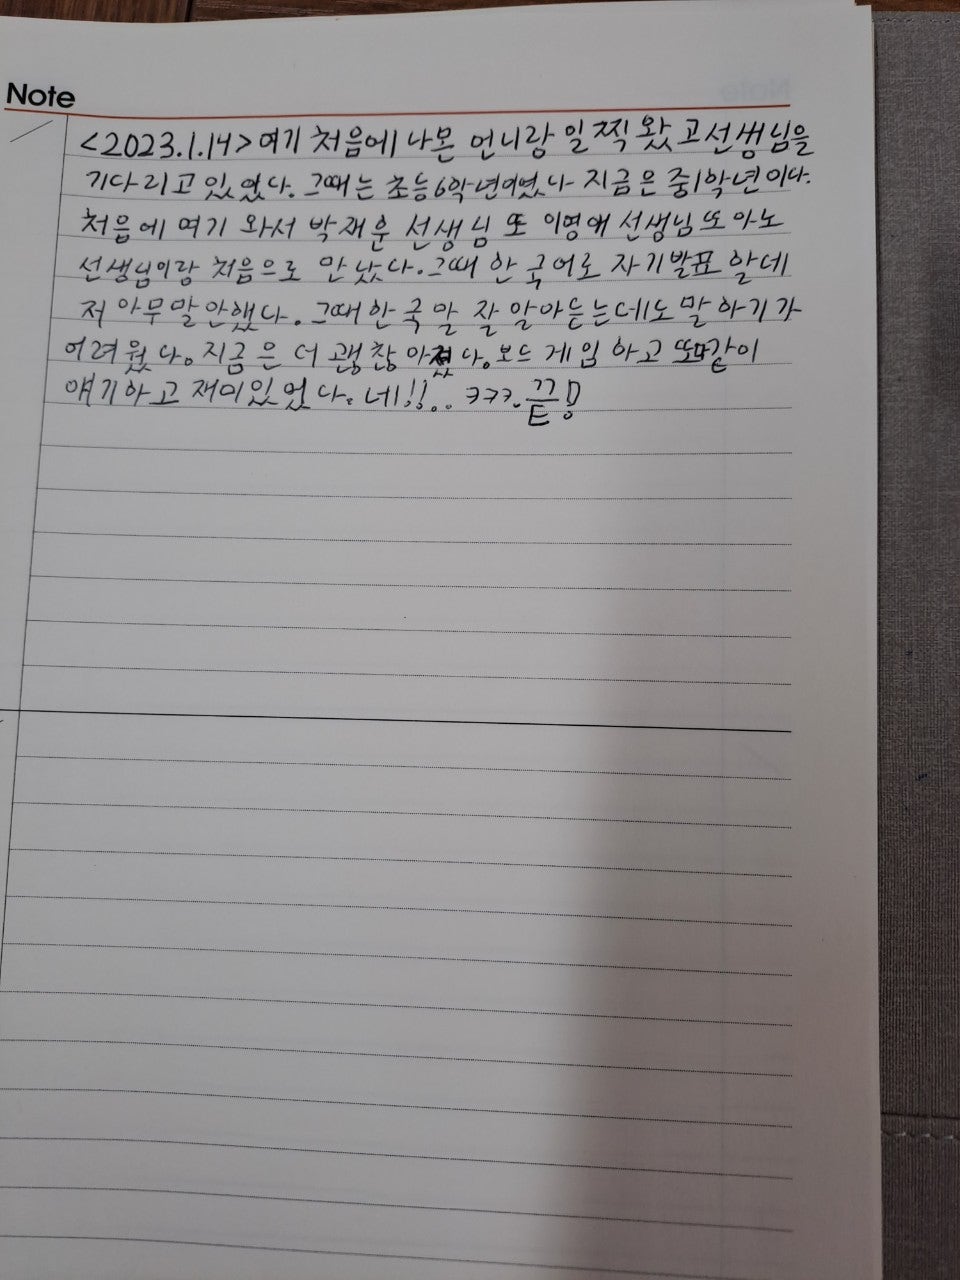 Note
<2023.1.14> 여기 처음에 나몬 언니랑 일찍 왔고 선생님을
기다리고 있었다. 그때는 초등6학년이였다 지금은 중1학년이다.
처음에 여기 와서 박재훈 선생님 또 이영애 선생님 또 아노
선생님이랑 처음으로 만났다. 그때 한국어로 자기발표 할데
저 아무말 안했다. 그때 한국말 잘 알아듣는데도 말하기가
어려웠다. 지금은 더 괞찮아졌다. 보드 게임 하고 또 같이
얘기하고 재미있었다. 네!!.. ㅋㅋㅋ. 끝!